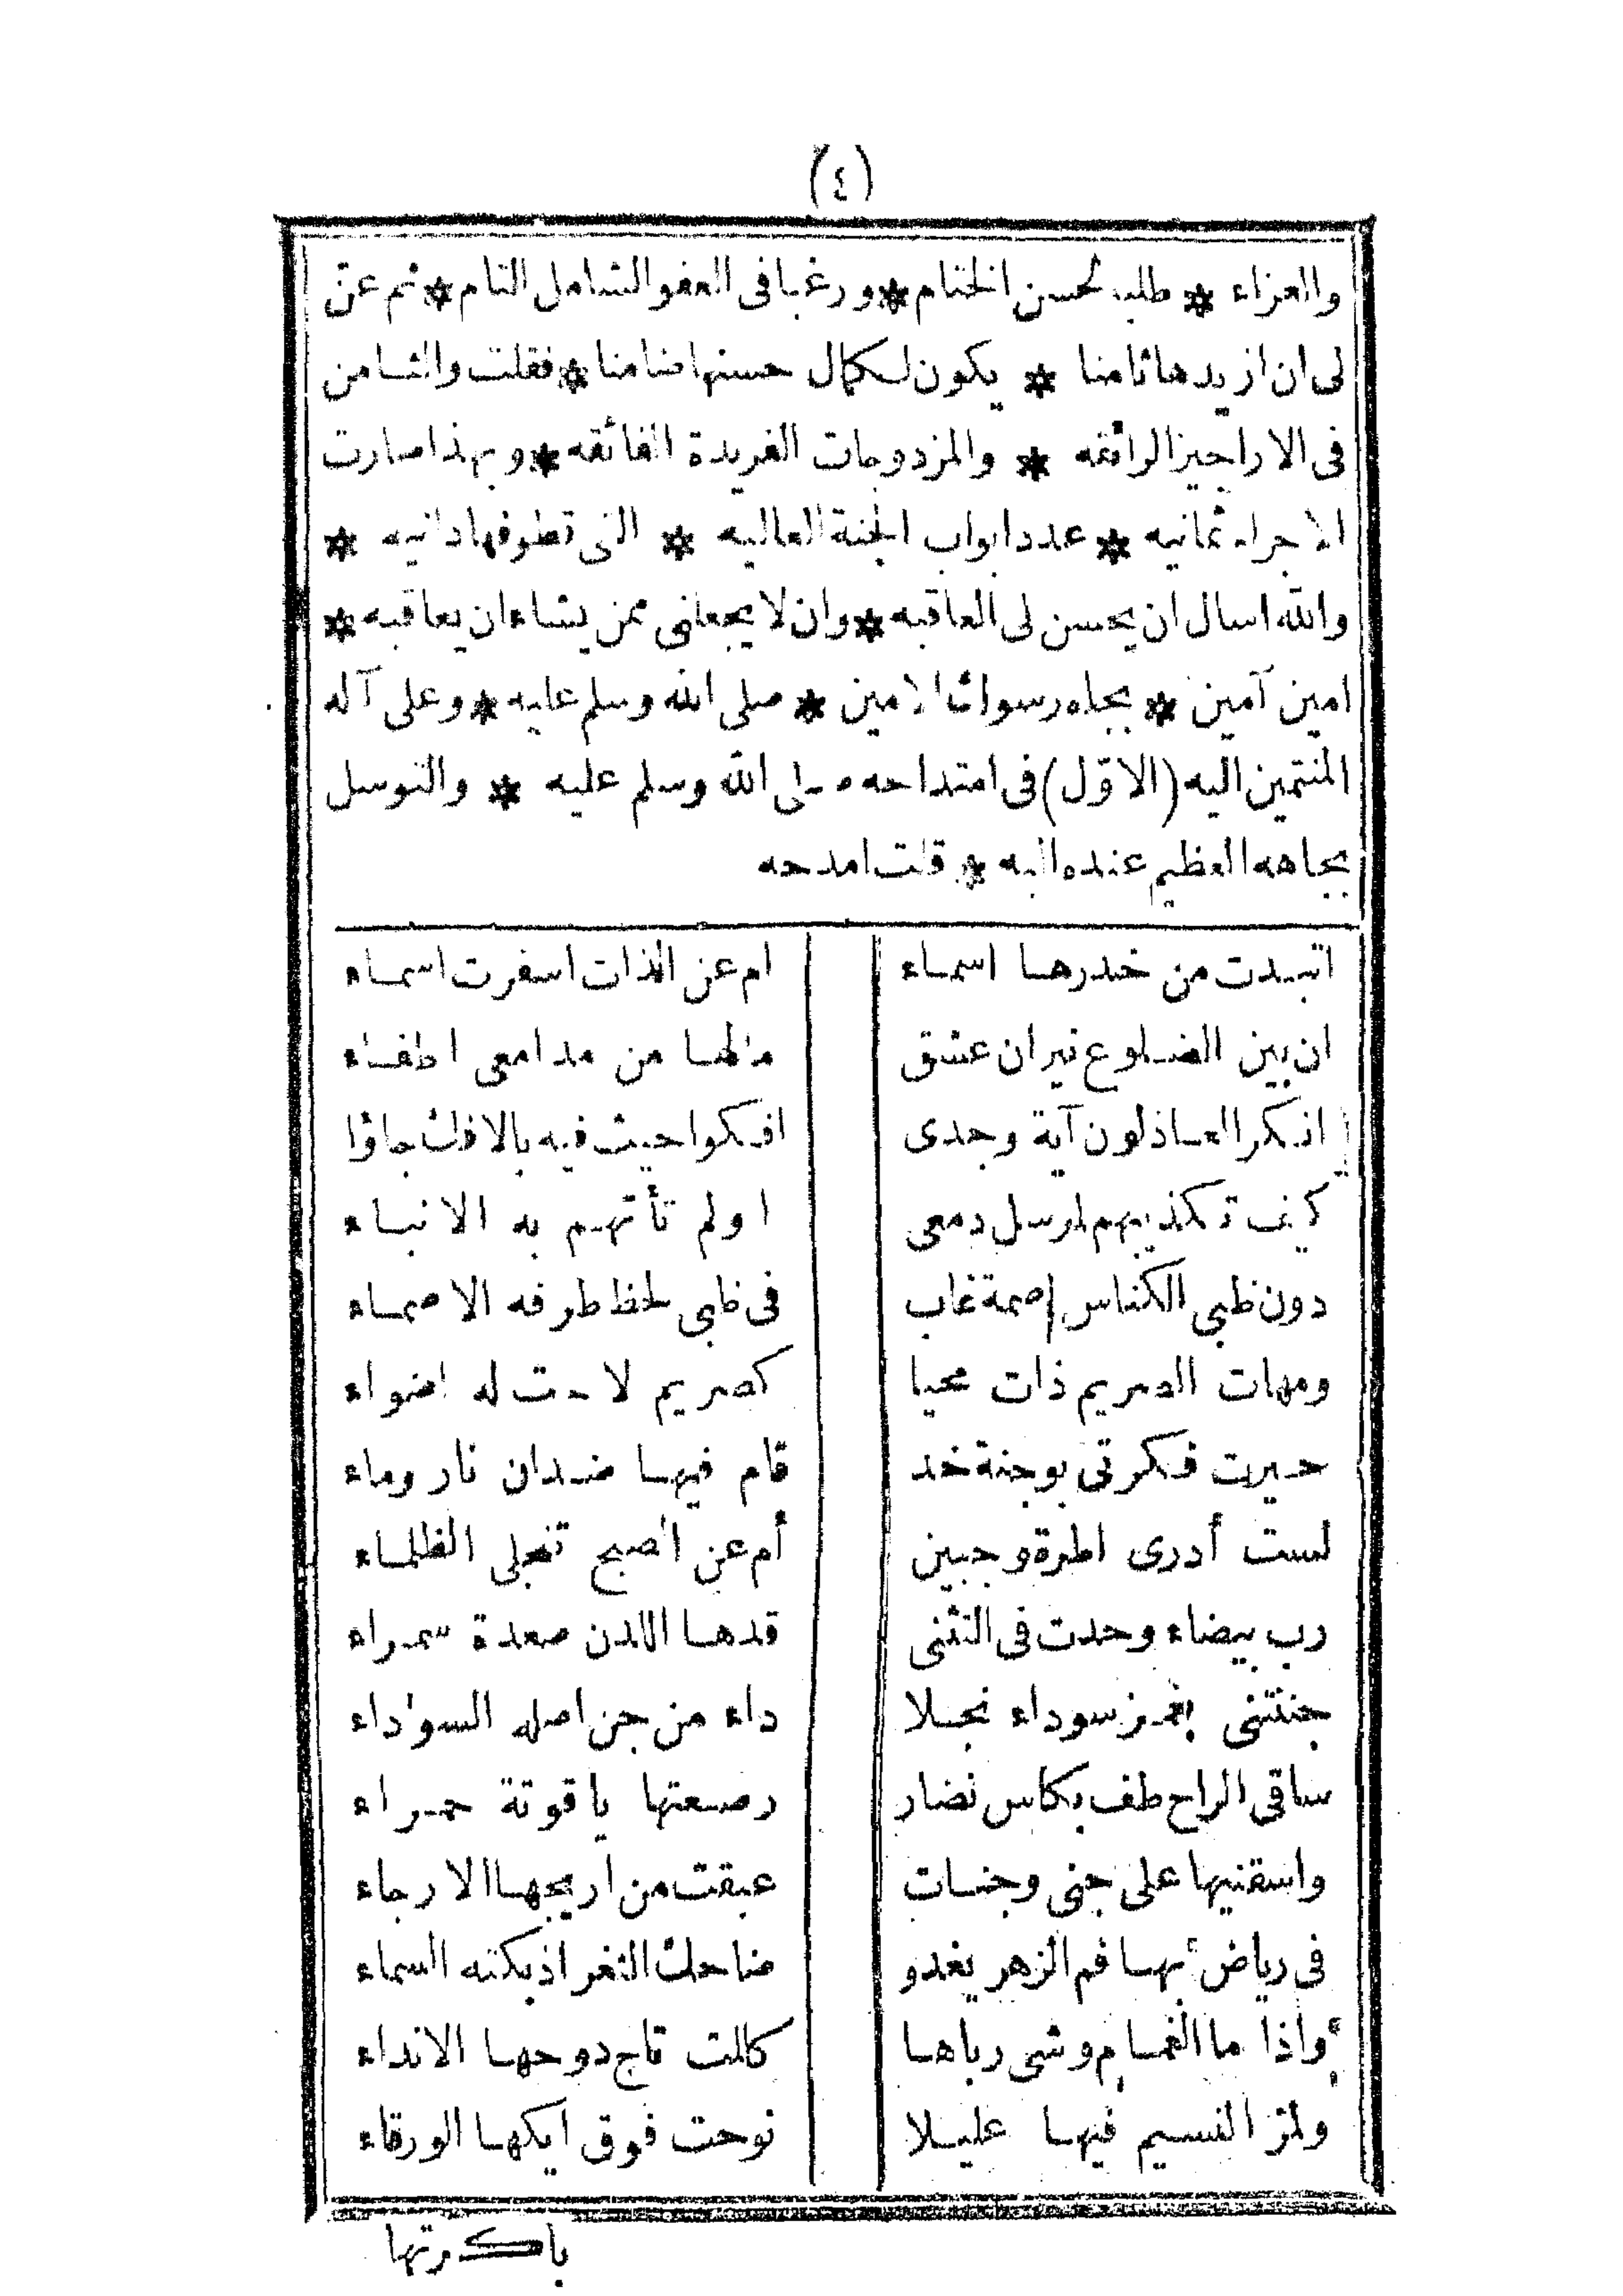 (٤)
والعزاء * طلبا لحسن الختام * ورغبا فى العفو الشامل التام * ثم عن
لى ان ازيدها ثامنا * يكون لكمال حسنها ضامنا * فقلت والثامن
فى الاراجيز الرائقه * والمزدوجات الفريدة الفائقه * وبهذا صارت
الاجراء ثمانيه * عدد ابواب الجنة العاليه * التى قطوفها دانيه *
والله اسال ان يحسن لى العاقبه * وان لا يجعلنى ممن يشاء ان يعاقبه *
امين آمين * بجاه رسولك الامين * صلى الله وسلم عليه * وعلى آله
المنتمين اليه (الاوّل) فى امتداحه صلى الله وسلم عليه * والتوسل
بجاهه العظيم عنده اليه * قلت امدحه
اتبدت من خدرها اسماء ام عن الذات اسفرت اسماء
ان بين الضلوع نيران عشق مالها من مدامعى اطفاء
انكر العاذلون آية وجدى افكوا حيث فيه بالافك جاؤا
كيف تكذيبهم لمرسل دمعى اولم تأتهم به الانباء
دون ظبى الكناس اصمة غاب فى ظبى لحظ طرفه الاصماء
ومهات الصريم ذات محيا كصريم لاحت له اضواء
حيرت فكرتى بوجنة خد قام فيها ضدان نار وماء
لست أدرى اطرة وجبين أم عن الصبح تنجلى الظلماء
رب بيضاء وحدت فى التثنى قدها اللدن صعدة سمراء
جننتنى بغمز سوداء نجلا داء من جن اصله السوداء
ساقى الراح طف بكاس نضار رصعتها ياقوتة حمراء
واسقنيها على جنى وجنات عبقت من اريجها الارجاء
فى رياض بها فم الزهر يغدو ضاحك الثغر اذ بكته السماء
واذا ما الغمام وشى رباها كللت تاج دوحها الانداء
ولمر النسيم فيها عليلا نوحت فوق ايكها الورقاء
باكرتها